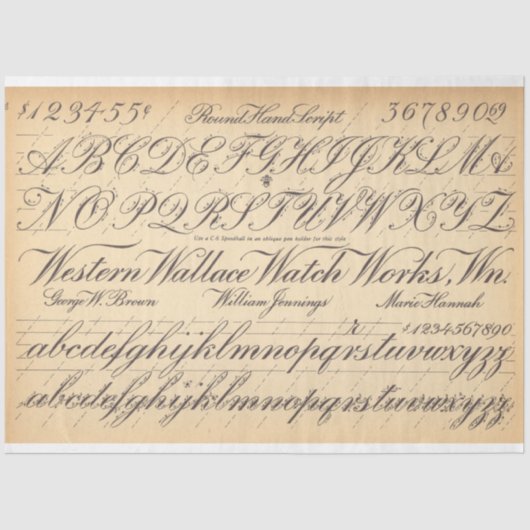 $123455¢ Round Hand Script 3678906⁹
ABCDEFGHIJKLM&
NOPQRSTUVWXYZ.
Use a C-6 Speedball in an oblique pen holder for this style
Western Wallace Watch Works, Wn.
George W. Brown William Jennings Marie Hannah
r $1234567890
abcdefghijklmnopqrstuvwxyzz
abcdefghijklmnopqrstuvwxyzz